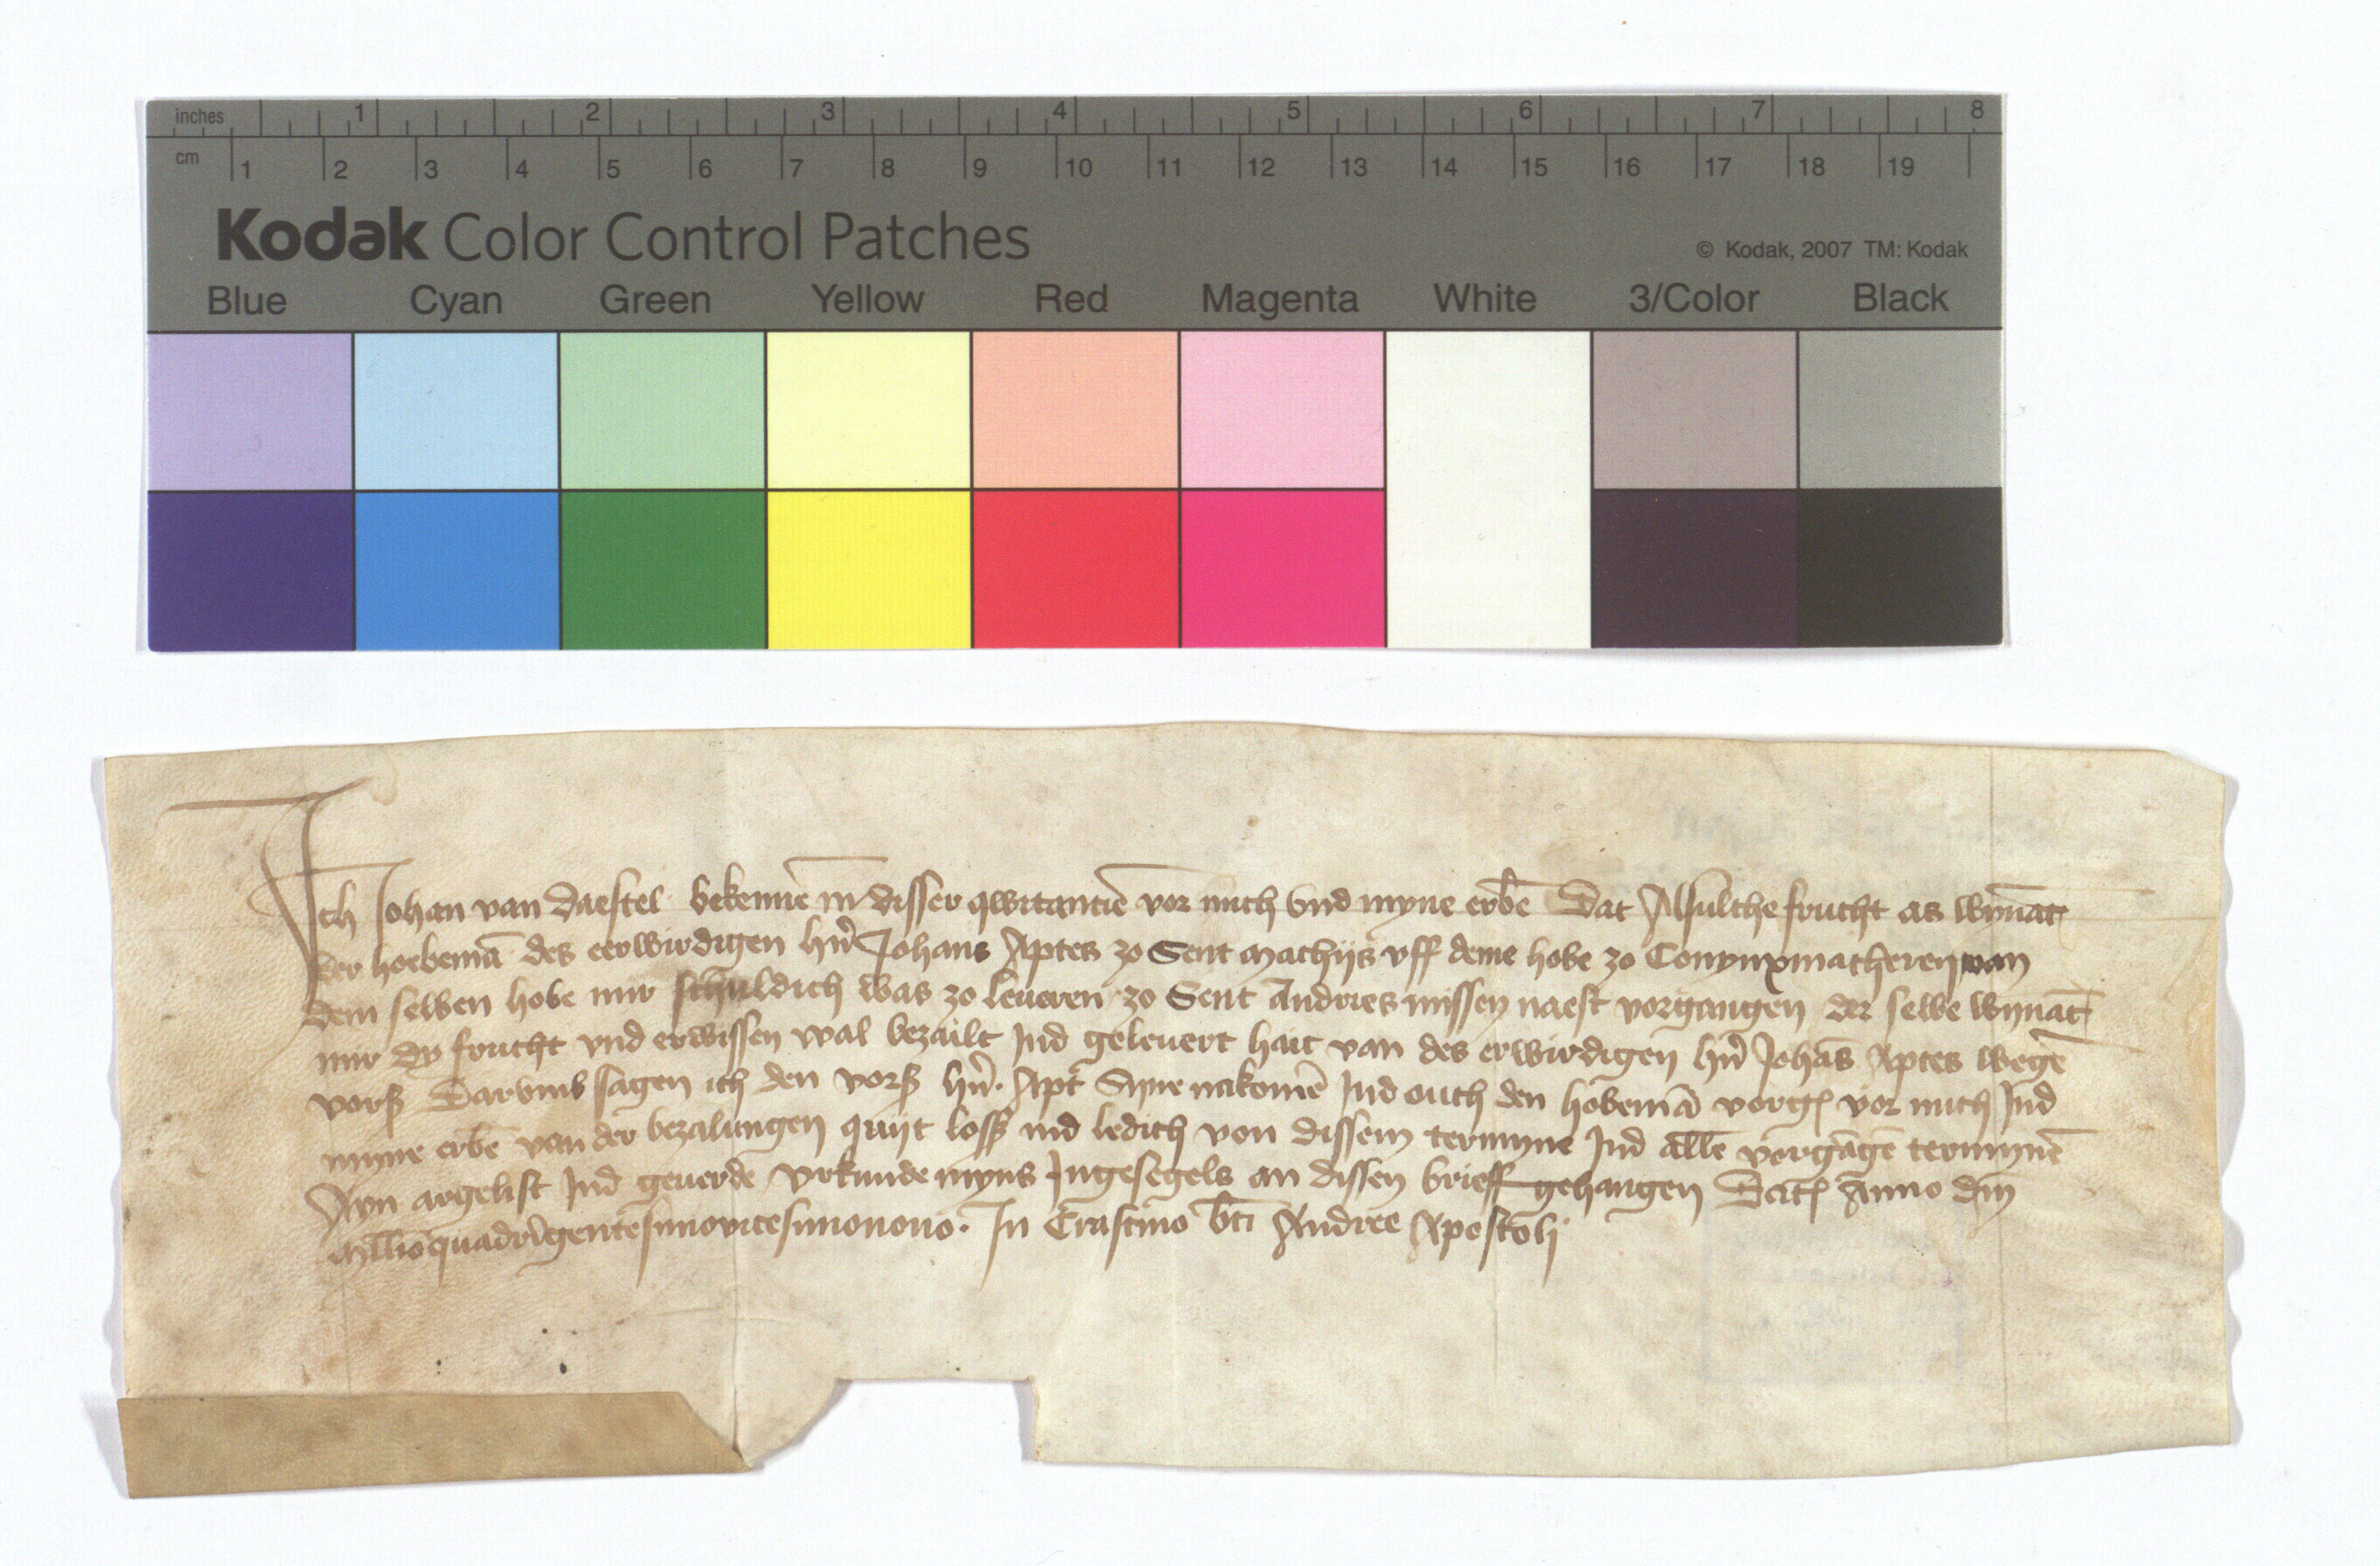 inches 1 2 3 4 5 6 7 8
cm 1 2 3 4 5 6 7 8 9 10 11 12 13 14 15 16 17 18 19
Kodak Color Control Patches
© Kodak, 2007 TM: Kodak
Blue Cyan Green Yellow Red Magenta White 3/Color Black
Ich Johan van Daestel bekenne̅ in disser qwitancie̅ vor mich vnd myne erbe̅ Dat Alsulche frucht as wyna̅t
der hoebema̅ des eerwirdigen hn̅ Johans Aptes zo Sent Mathijs vff deme hobe zo Conynxmacheren van
dem selben hobe mir schuldich was zo leueren zo Sent Andries missen naest vorgangen der selbe wyna̅t
mir dy frucht vnd erwissen wal bezailt Ind geleuert hait van des erwirdigen hn̅ Joha̅s Aptes wege̅
vorß Darvmb sagen ich den vorß hn̅ Apt Syne nakome̅ Ind ouch den hobema̅ vorgꝭ vor mich Ind
myne erbe̅ van der bezalungen quyt loß ind ledich von dissem termyne Ind alle̅ vorga̅ge̅ termyne̅
Ayn argelist Ind geuerde Vrkunde myns Ingesegels an dissen brieff gehangen Datꝭ Anno dn̅i
Mill̅io̅quadri̅gente̅simovicesimonono. In Crastino bt̅i Andree Apostolj